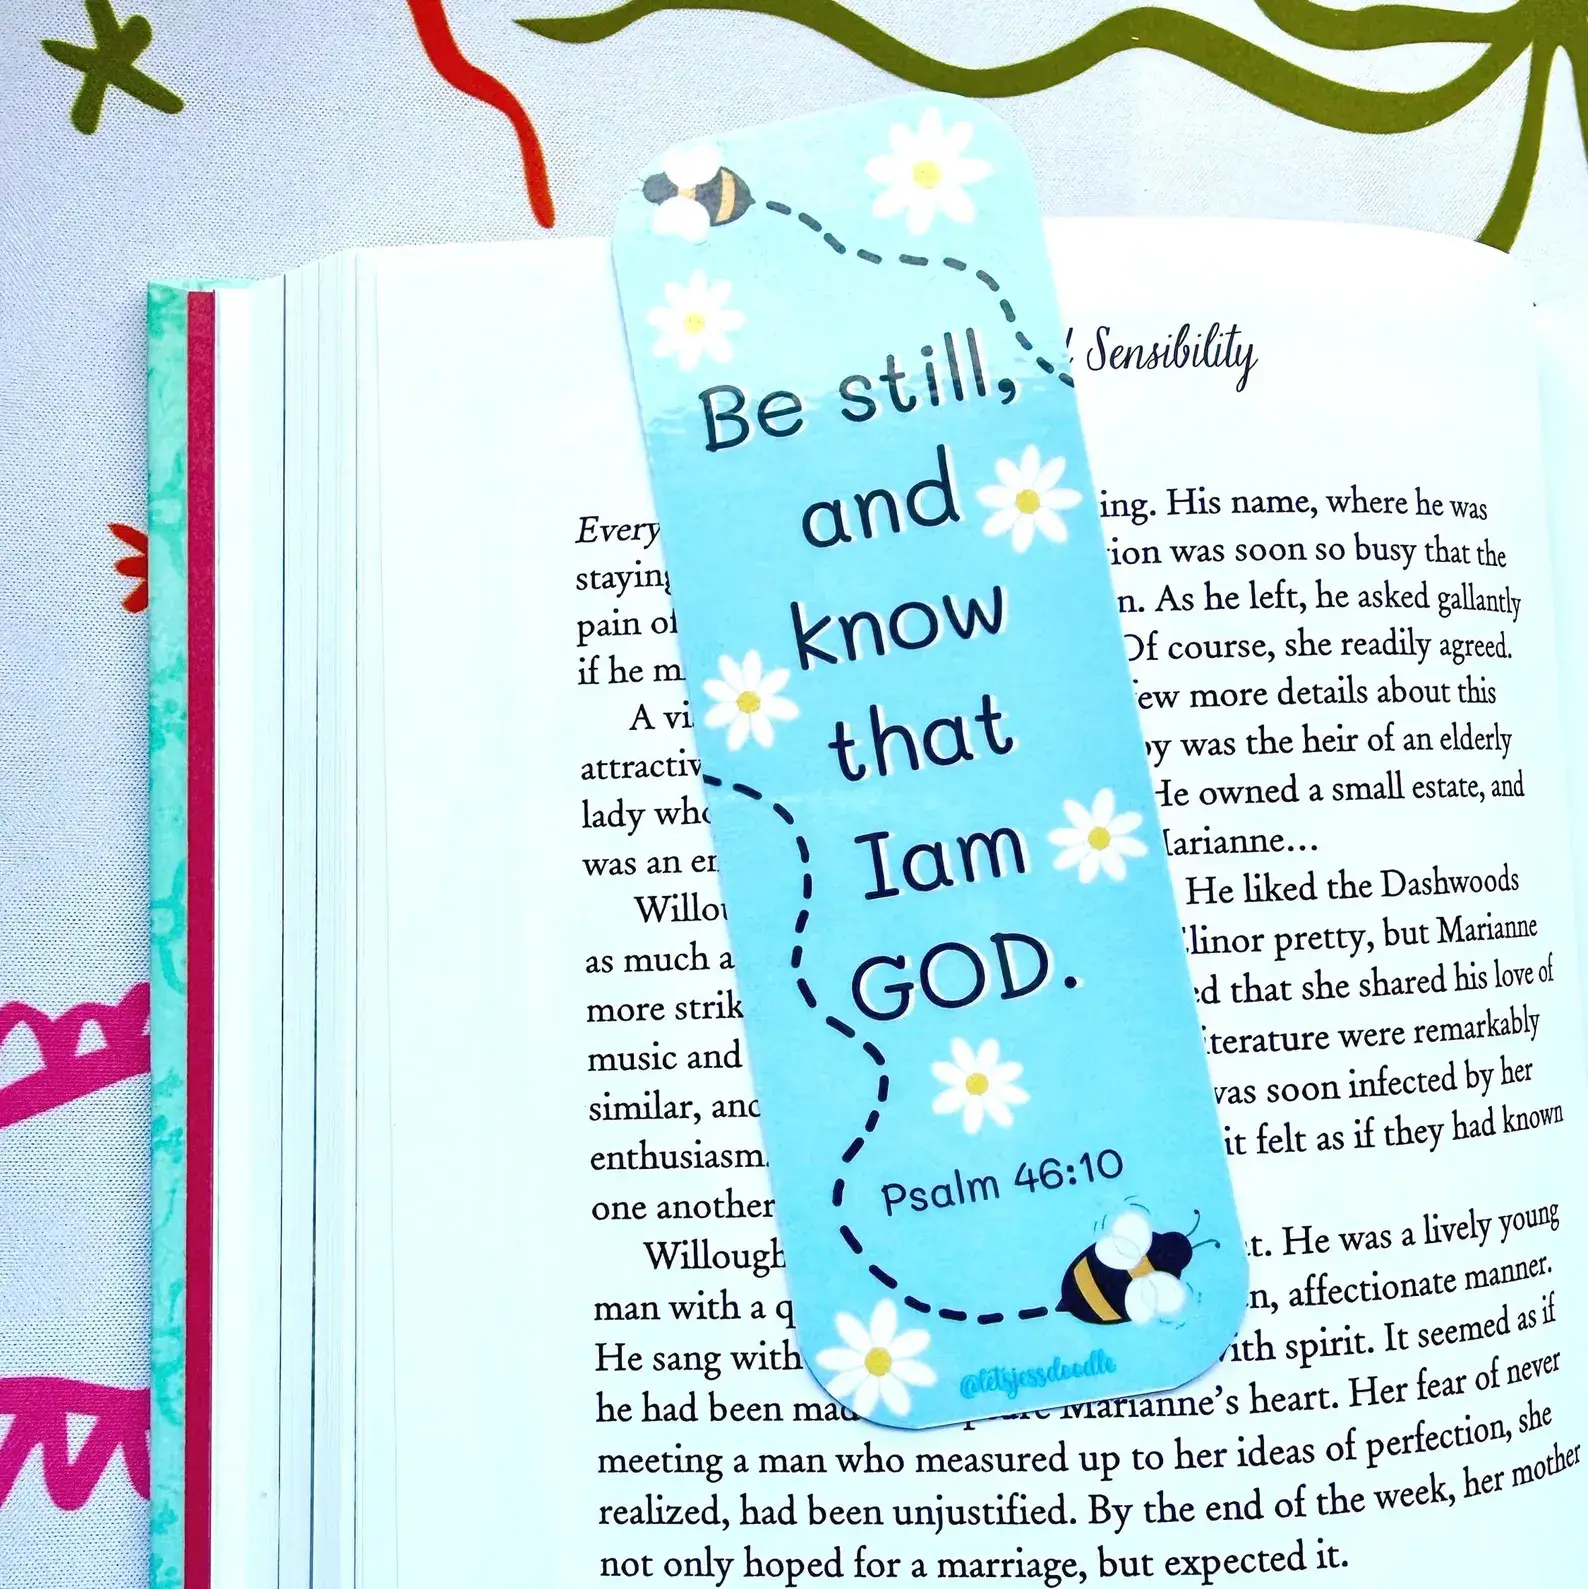 Sensibility
Be still,
and
know
that
I am
GOD.
Psalm 46:10
@letsjessdoodle
Every ing. His name, where he was
staying ion was soon so busy that the
pain of n. As he left, he asked gallantly
if he m Of course, she readily agreed.
A vi ew more details about this
attractiv by was the heir of an elderly
lady who He owned a small estate, and
was an en Marianne...
Willou He liked the Dashwoods
as much a Elinor pretty, but Marianne
more strik ed that she shared his love of
music and iterature were remarkably
similar, and was soon infected by her
enthusiasm. it felt as if they had known
one another
Willough t. He was a lively young
man with a q n, affectionate manner.
He sang with with spirit. It seemed as if
he had been mad Marianne’s heart. Her fear of never
meeting a man who measured up to her ideas of perfection, she
realized, had been unjustified. By the end of the week, her mother
not only hoped for a marriage, but expected it.